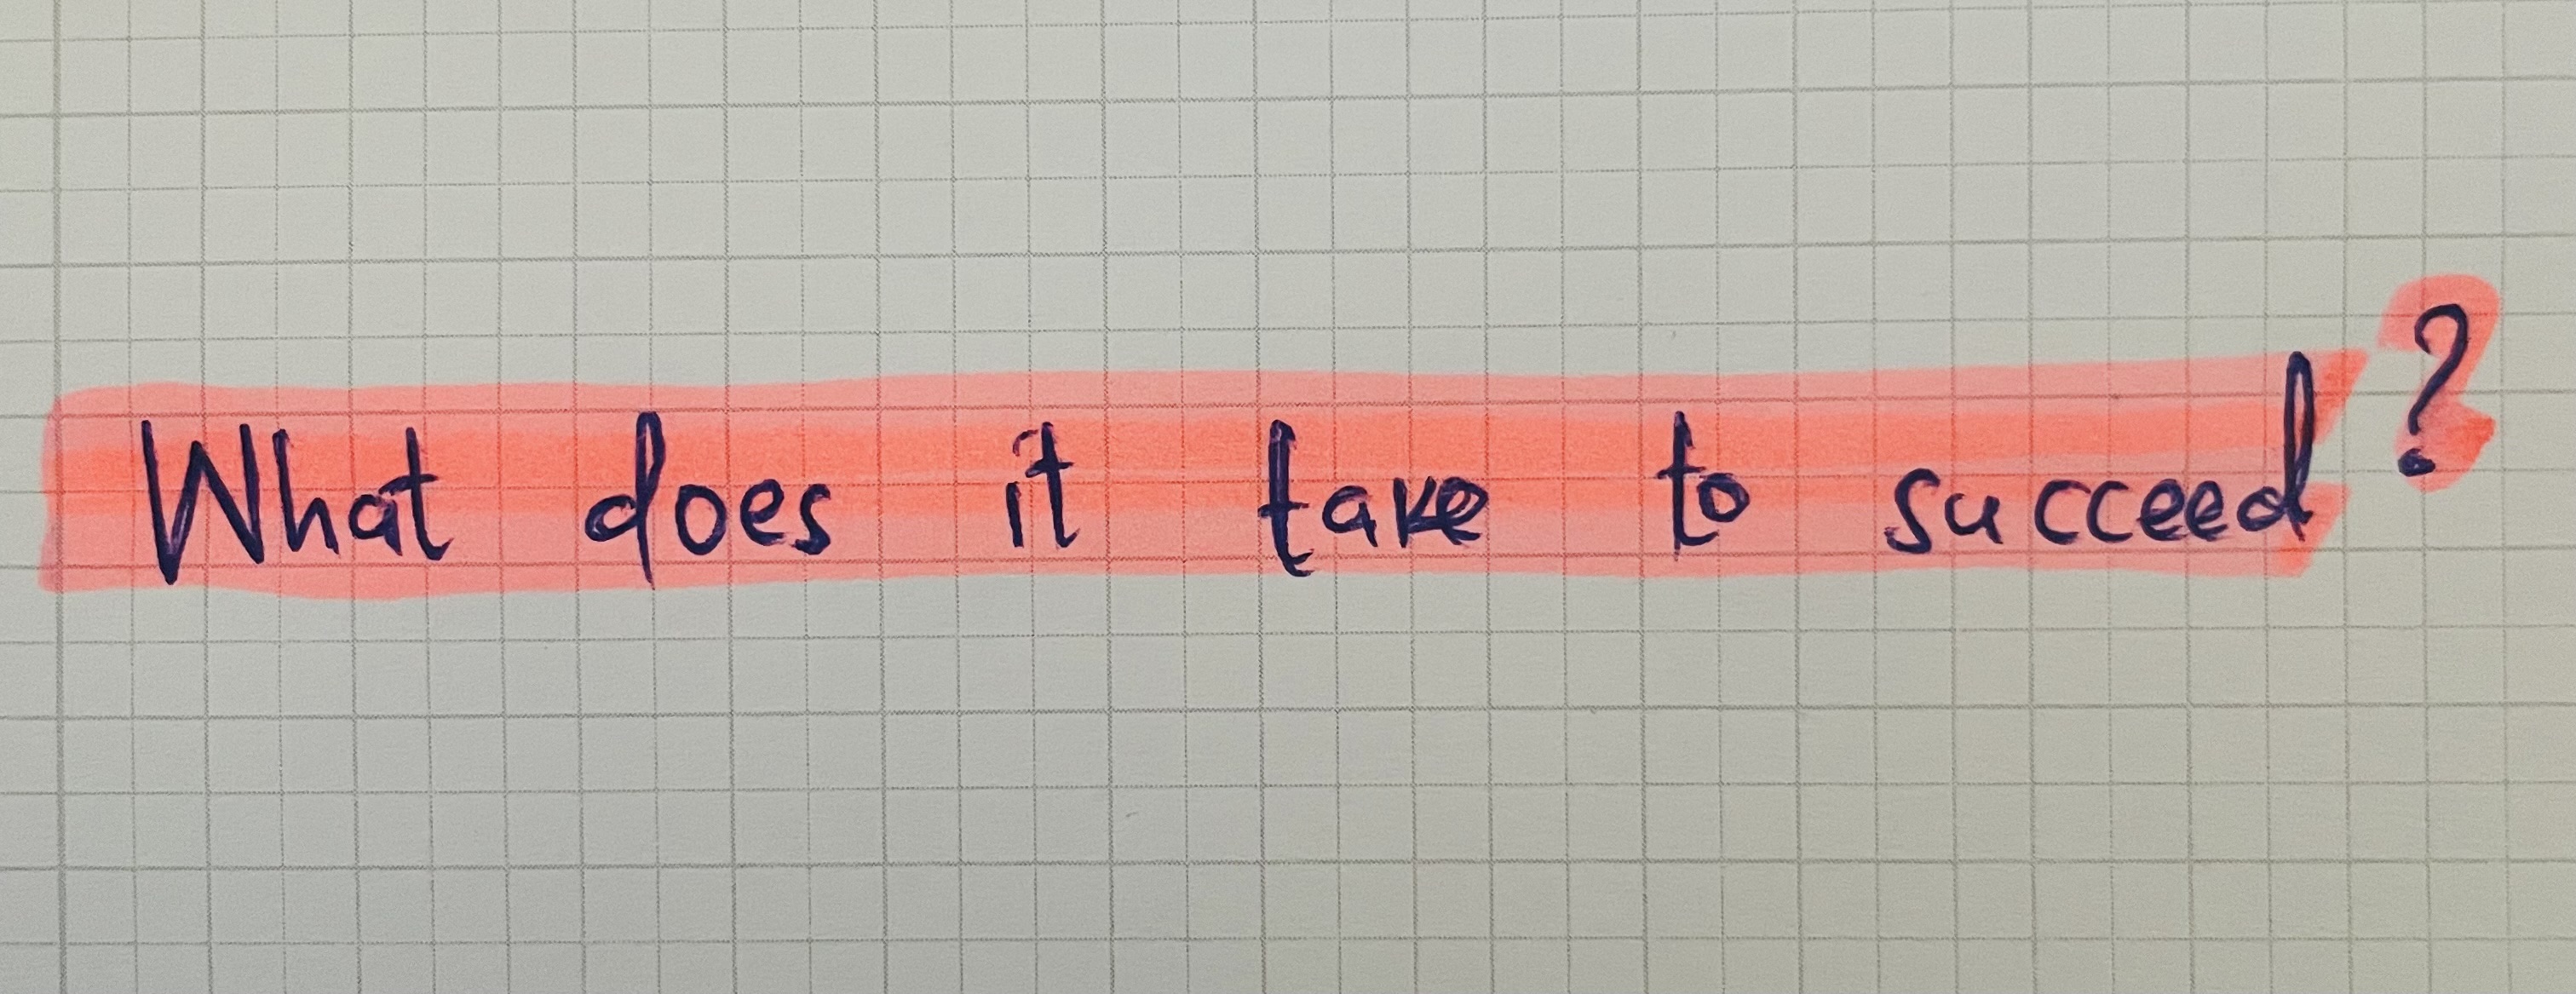 What does it take to succeed?